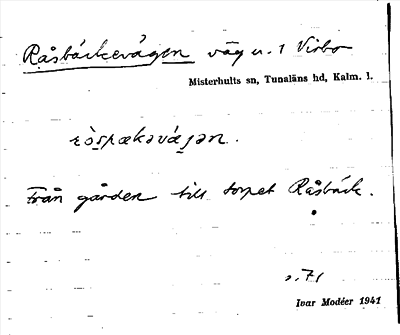 Råsbäckevägen väg u. 1 Virbo
Misterhults sn, Tunaläns hd, Kalm. l.
ròspækəvájən.
Från gården till torpet Råsbäck.
s. 71
Ivar Modéer 1941